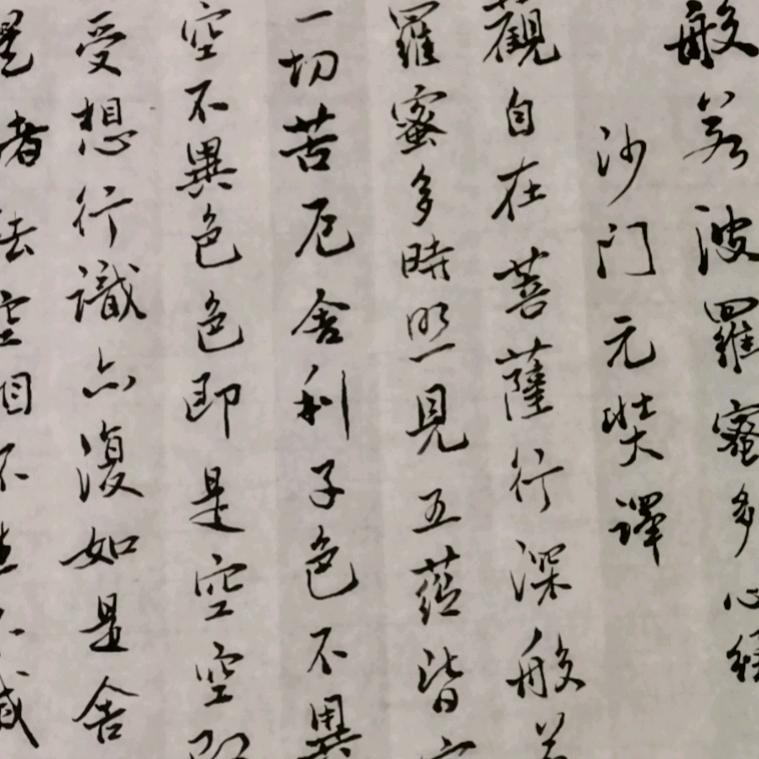 般若波羅蜜多心經
沙门元奘譯
觀自在菩薩行深般若
羅蜜多時照見五蘊皆空
一切苦厄舍利子色不異
空不異色色即是空空即
受想行識亦復如是舍
是諸法空相不生不滅